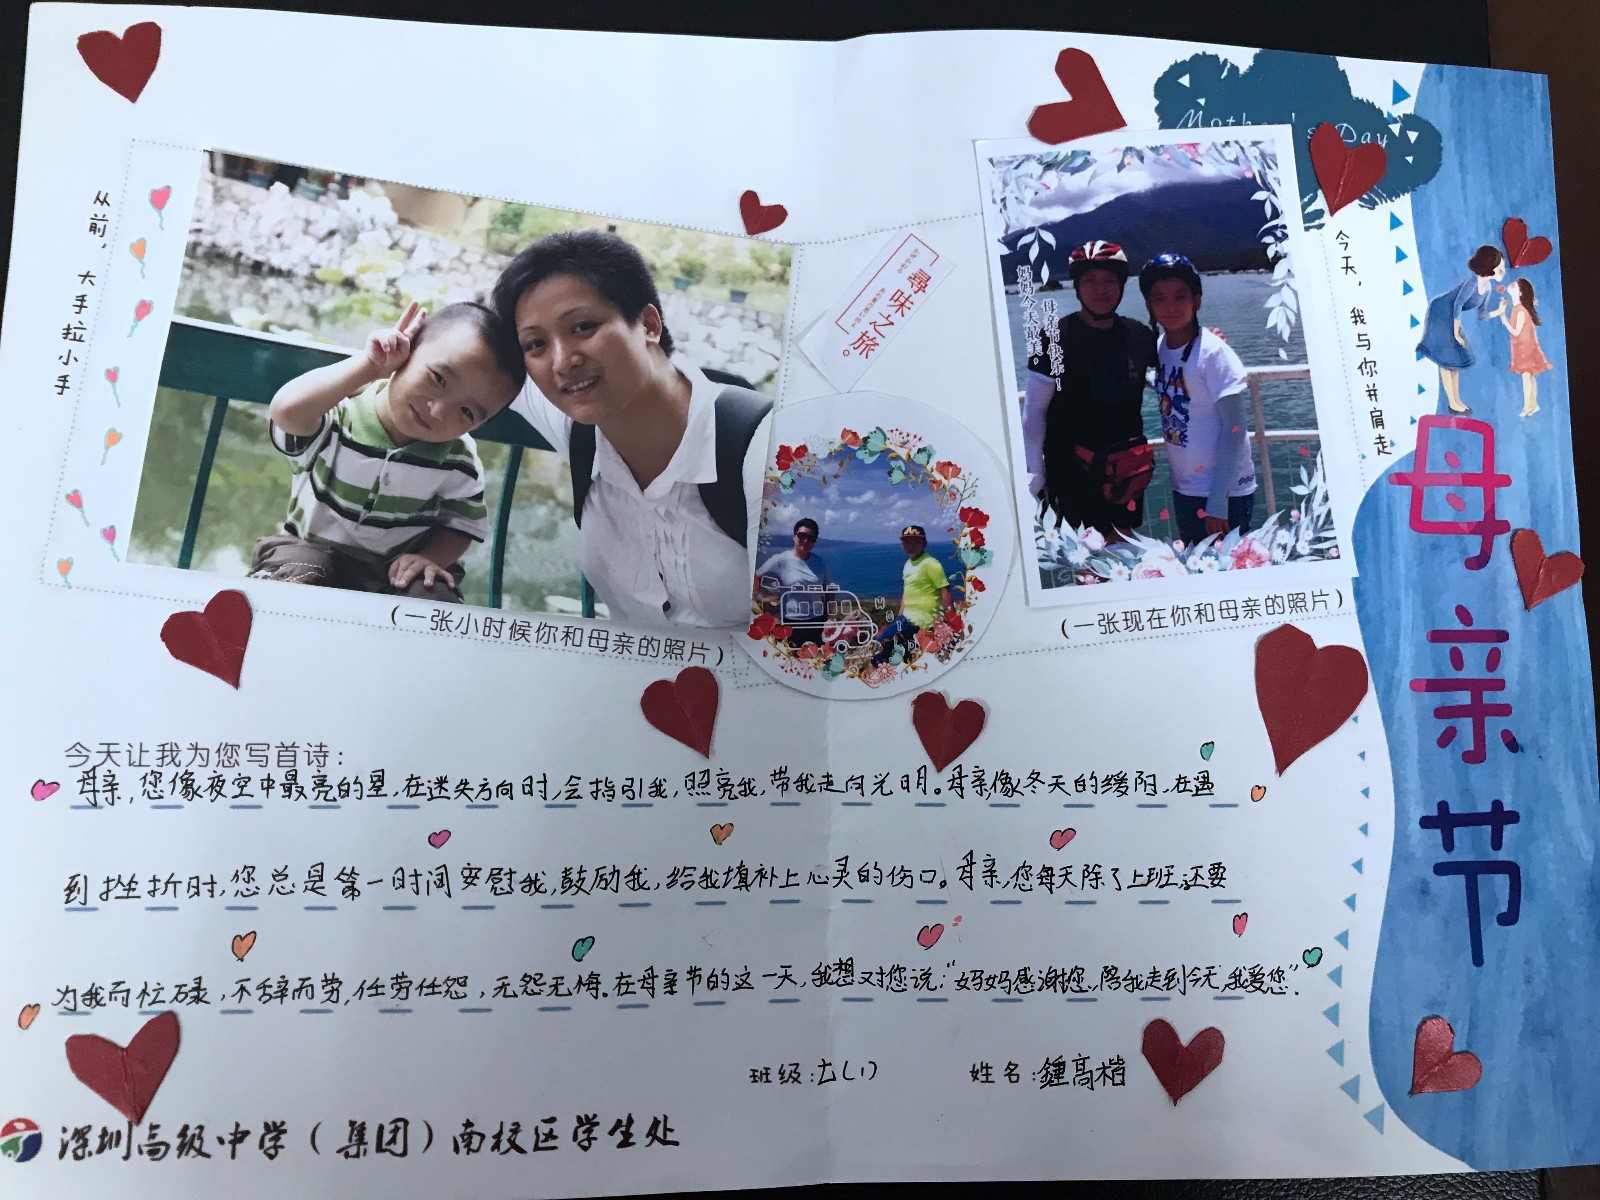 Mother's Day
从前，大手拉小手
今天，我与你并肩走
尋味之旅。
妈妈今天最美，
母亲节快乐！
母亲节
(一张小时候你和母亲的照片)
(一张现在你和母亲的照片)
今天让我为您写首诗：
母亲，您像夜空中最亮的星，在迷失方向时，会指引我，照亮我，带我走向光明。母亲，像冬天的缓阳，在遇
到挫折时，您总是第一时间安慰我，鼓励我，给我填补上心灵的伤口。母亲，您每天除了上班，还要
为我而忙碌，不辞而劳，任劳任怨，无怨无悔。在母亲节的这一天，我想对您说：“妈妈感谢您，陪我走到今天，我爱您”.
班级：七(1)
姓名：鍾高楷
深圳高级中学（集团）南校区学生处